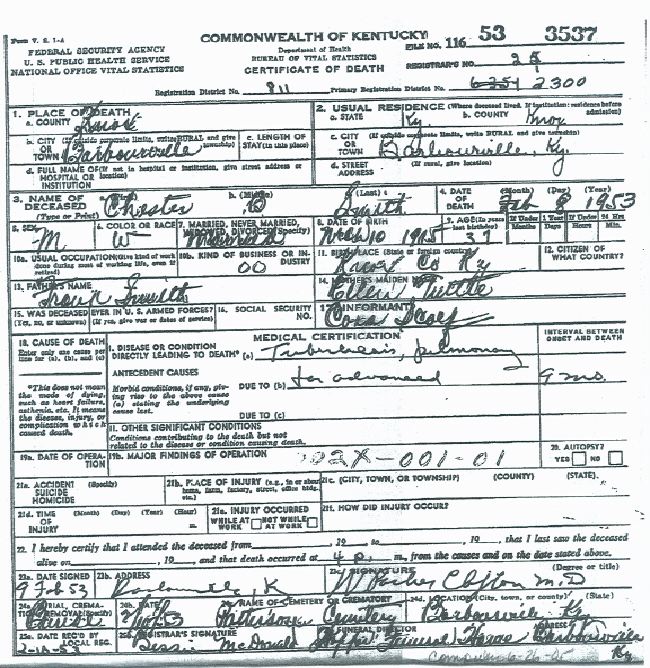 Form V. S. 1-A
COMMONWEALTH OF KENTUCKY
FILE NO. 116 53 3537
FEDERAL SECURITY AGENCY
U. S. PUBLIC HEALTH SERVICE
NATIONAL OFFICE VITAL STATISTICS
Department of Health
BUREAU OF VITAL STATISTICS
CERTIFICATE OF DEATH
REGISTRAR'S NO.
Registration District No. 811 Primary Registration District No. 2300
1. PLACE OF DEATH
a. COUNTY Knox
2. USUAL RESIDENCE (Where deceased lived. If institution: residence before admission)
a. STATE Ky b. COUNTY Knox
b. CITY (If outside corporate limits, write RURAL and give township)
OR TOWN Barbourville
c. LENGTH OF STAY (in this place)
c. CITY (If outside corporate limits, write RURAL and give township)
OR TOWN Barbourville, Ky.
d. FULL NAME OF (If not in hospital or institution, give street address or location)
HOSPITAL OR INSTITUTION
d. STREET ADDRESS (If rural, give location)
3. NAME OF DECEASED (Type or Print)
a. Chester b. (Middle) c. (Last) Smith
4. DATE OF DEATH (Month) (Day) (Year) Feb 8 1953
5. SEX M
6. COLOR OR RACE W
7. MARRIED, NEVER MARRIED, WIDOWED, DIVORCED (Specify) Married
8. DATE OF BIRTH 10 1915
9. AGE (In years last birthday) 37
If Under 1 Year Months Days
If Under 24 Hrs Hours Min.
10a. USUAL OCCUPATION (Give kind of work done during most of working life, even if retired)
10b. KIND OF BUSINESS OR INDUSTRY 00
11. BIRTHPLACE (State or foreign country) Knox Co Ky
12. CITIZEN OF WHAT COUNTRY?
13. FATHER'S NAME Frank Smith
14. MOTHER'S MAIDEN NAME Ellen Tuttle
15. WAS DECEASED EVER IN U. S. ARMED FORCES?
(Yes, no, or unknown) (If yes, give war or dates of service)
16. SOCIAL SECURITY NO.
17. INFORMANT Cora
18. CAUSE OF DEATH
Enter only one cause per line for (a), (b), and (c)
MEDICAL CERTIFICATION
INTERVAL BETWEEN ONSET AND DEATH
I. DISEASE OR CONDITION DIRECTLY LEADING TO DEATH* (a) Tuberculosis, pulmonary
*This does not mean the mode of dying, such as heart failure, asthenia, etc. It means the disease, injury, or complication which caused death.
ANTECEDENT CAUSES
Morbid conditions, if any, giving rise to the above cause (a) stating the underlying cause last.
DUE TO (b) far advanced 9 mo.
DUE TO (c)
II. OTHER SIGNIFICANT CONDITIONS
Conditions contributing to the death but not related to the disease or condition causing death.
19a. DATE OF OPERATION
19b. MAJOR FINDINGS OF OPERATION
002X-001-01
20. AUTOPSY?
YES NO
21a. ACCIDENT SUICIDE HOMICIDE (Specify)
21b. PLACE OF INJURY (e.g., in or about home, farm, factory, street, office bldg., etc.)
21c. (CITY, TOWN, OR TOWNSHIP) (COUNTY) (STATE)
21d. TIME OF INJURY (Month) (Day) (Year) (Hour) m.
21e. INJURY OCCURRED
WHILE AT WORK NOT WHILE AT WORK
21f. HOW DID INJURY OCCUR?
22. I hereby certify that I attended the deceased from , 19 to , 19 , that I last saw the deceased
alive on , 19 , and that death occurred at 4 p. m., from the causes and on the date stated above.
23a. DATE SIGNED 9 Feb 53
23b. ADDRESS Barbourville, K
23c. SIGNATURE Clifton M.D (Degree or title)
24a. BURIAL, CREMATION, REMOVAL (Specify) Burial
24b. DATE
24c. NAME OF CEMETERY OR CREMATORY Patterson Cemetery
24d. LOCATION (City, town, or county) (State) Barbourville Ky
25a. DATE REC'D BY LOCAL REG.
25b. REGISTRAR'S SIGNATURE Bessie McDonald
FUNERAL DIRECTOR Funeral Home
ADDRESS Barbourville Ky